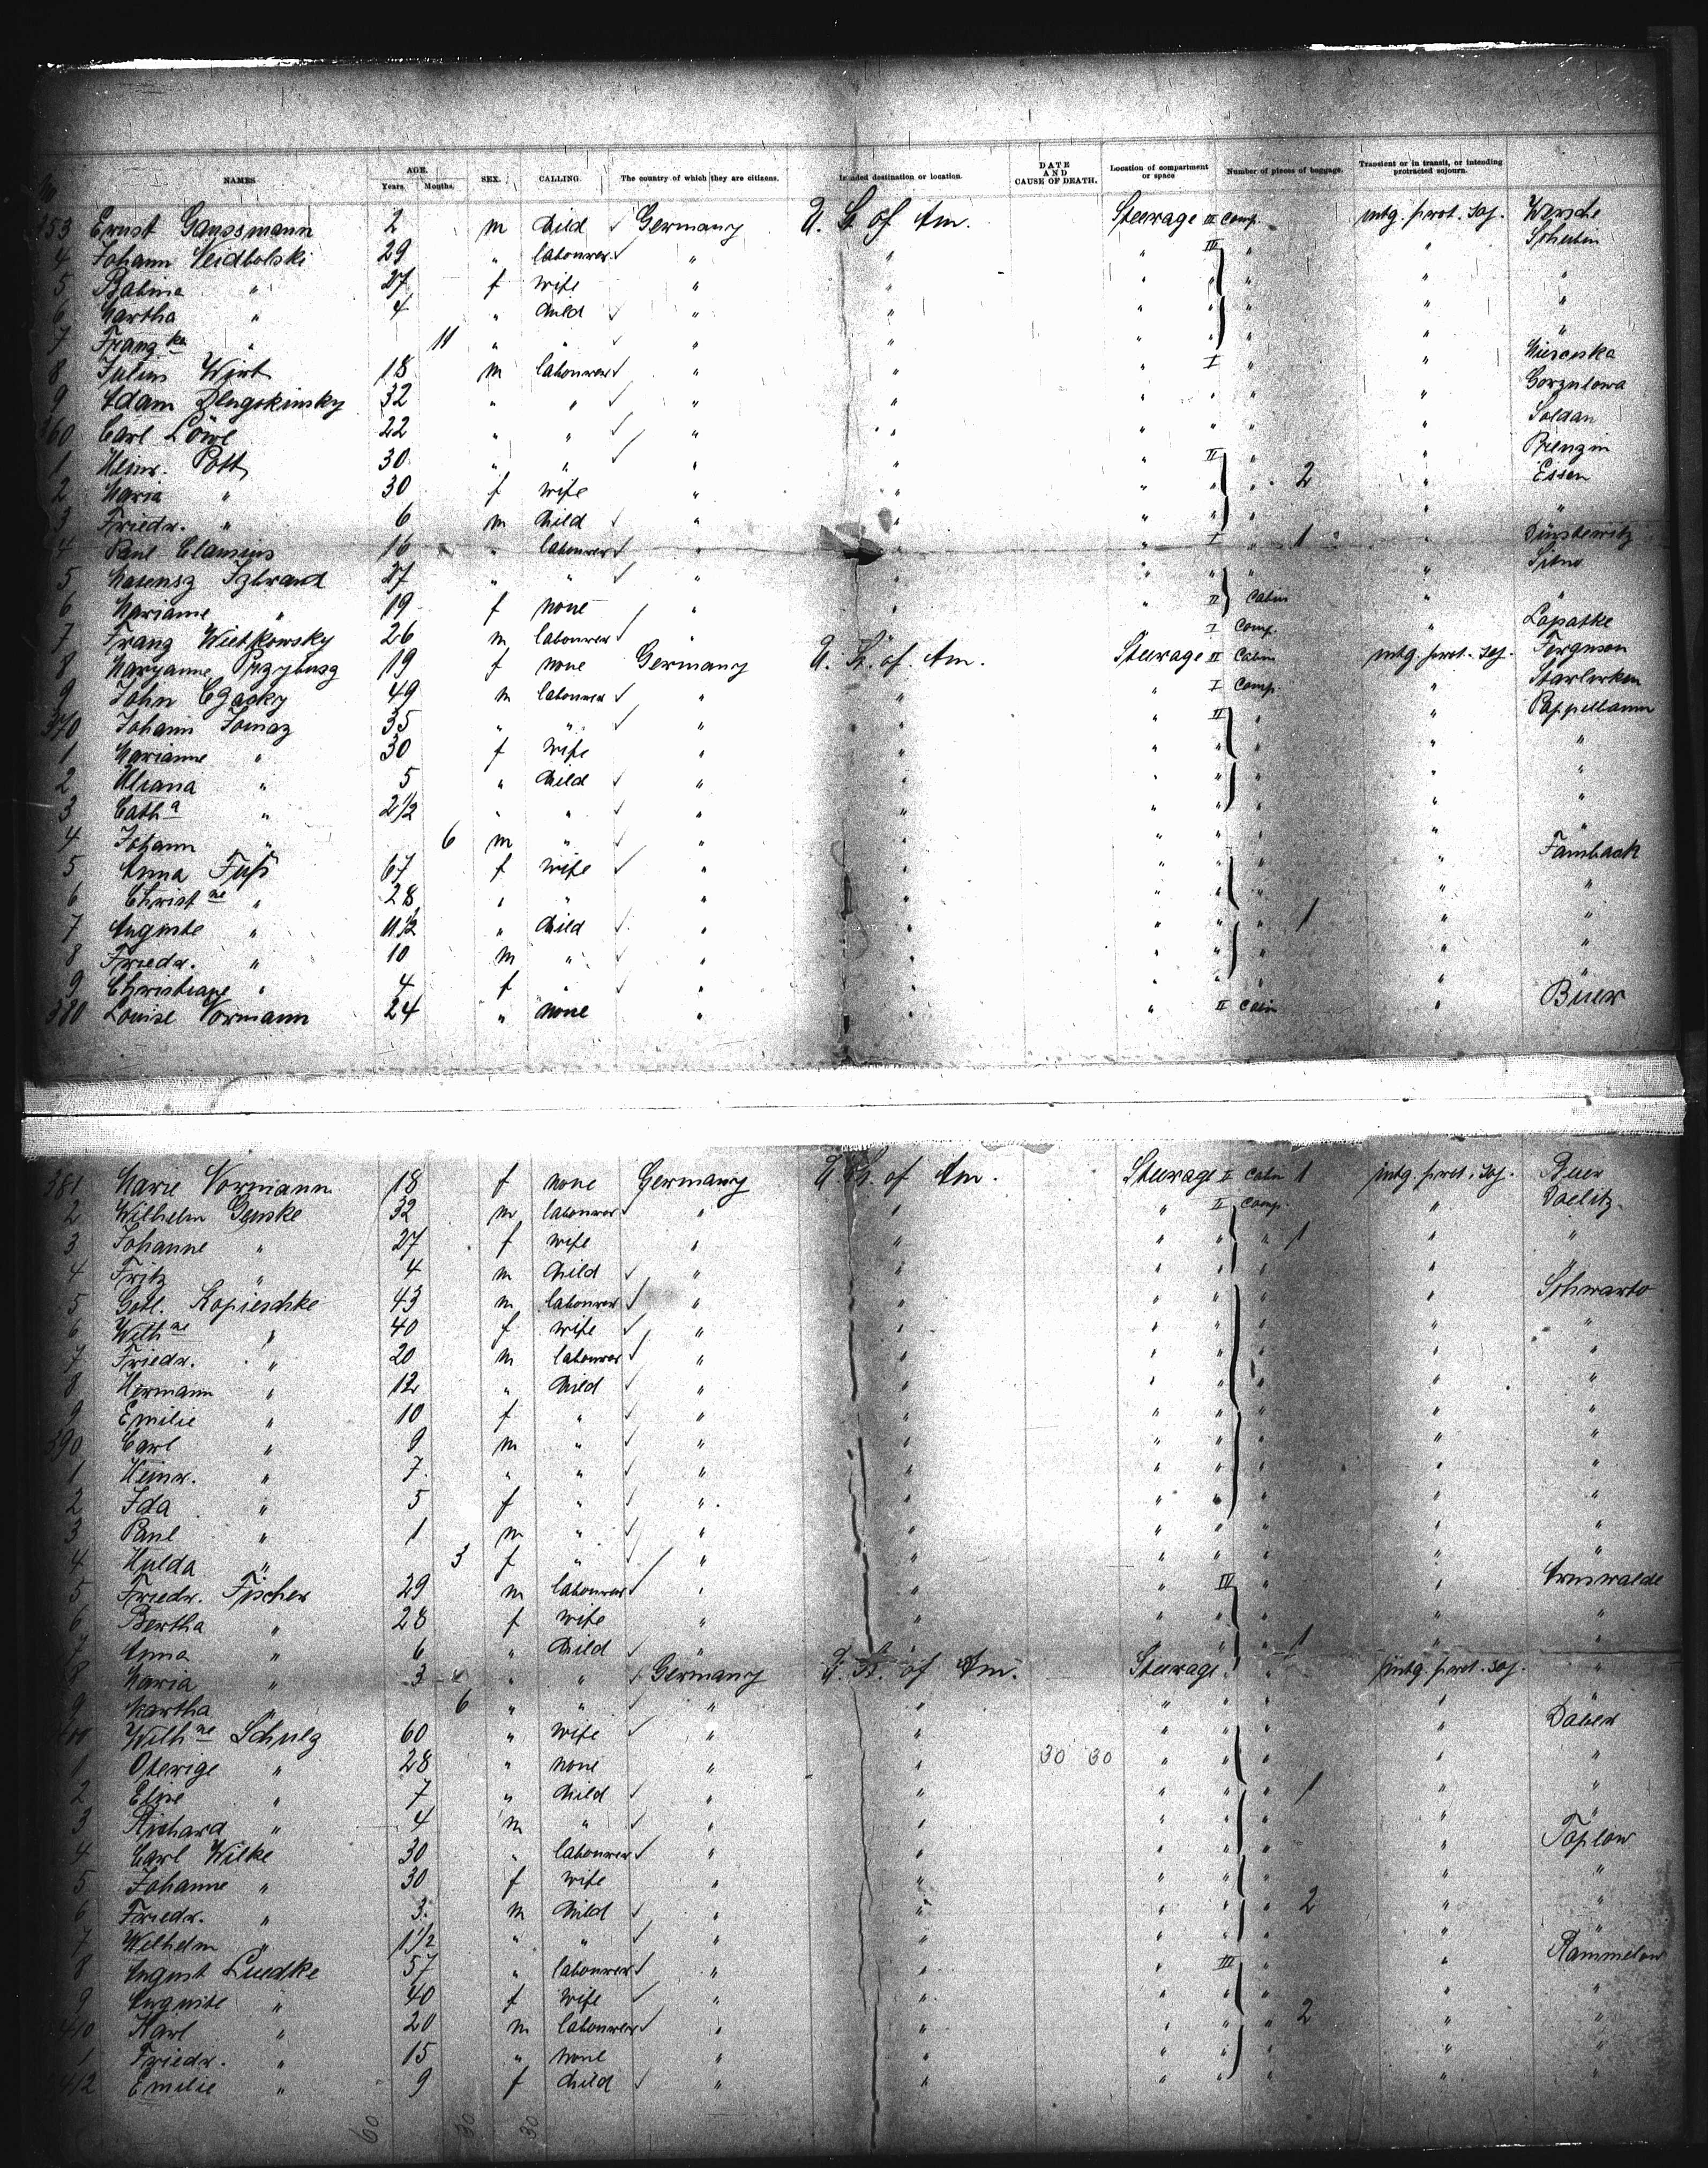 NAMES. AGE. Years. Months. SEX. CALLING. The country of which they are citizens. Intended destination or location. DATE AND CAUSE OF DEATH. Location of compartment or space Number of pieces of baggage. Transient or in transit, or intending protracted sojourn.
353 Ernst Gangsmann 2 m child ✓ Germany U. St. of Am. Steerage III comp. intg. prot. soj.
4 Johann 29 " labourer ✓ " " " III " " Schubin
5 " 27 f wife " " " " " " "
6 Martha " 4 " child ✓ " " " " " " "
7 Franz ka " 11 " " ✓ " " " " " " "
8 Julius Wirt 18 m labourer ✓ " " " I " "
9 Adam 32 " " ✓ " " " " " "
360 Carl Löwe 22 " " ✓ " " " " " " Soldan
1 Heinr. Pott 30 " " ✓ " " " II " "
2 Maria " 30 f wife " " " " " 2 " Essen
3 Friedr. " 6 m child ✓ " " " " " " "
4 Paul Clausius 16 " labourer ✓ " " " I " 1 "
5 Izbrand 27 " " ✓ " " " " " "
6 Marianne " 19 f none " " " II Cabin " "
7 Franz Wietkowsky 26 m labourer ✓ " " " I Comp. " Lopatke
8 Maryanne 19 f none Germany U. St. of Am. Steerage II Cabin intg. prot. soj.
9 John 49 m labourer ✓ " " " I Comp. "
370 Johann Tomaz 35 " " ✓ " " " II " " Pappelbaum
1 Marianne " 30 f wife " " " " " " "
2 " 5 " child ✓ " " " " " " "
3 Cath a " 2 1/2 " " ✓ " " " " " " "
4 Johann " 6 m " ✓ " " " " " " "
5 Anna Fuß 67 f wife ✓ " " " " " " Famback
6 Christ ne " 28 " " " " " " " " "
7 Auguste " 11 1/2 " child ✓ " " " " " 1 " "
8 Friedr. " 10 m " ✓ " " " " " " "
9 Christiane " 4 f " ✓ " " " " " " "
380 Louise Vormann 24 " none " " " II Cabin " Buer
381 Marie Vormann 18 f none Germany U. St. of Am. Steerage II Cabin 1 intg. prot. soj. Buer
2 Wilhelm Genske 32 m labourer ✓ " " " II Comp. " Daelitz
3 Johanne " 27 f wife " " " " " 1 " "
4 Fritz " 4 m child ✓ " " " " " "
5 Gotl. Kopieschke 43 m labourer ✓ " " " " " "
6 Wilh ne " 40 f wife ✓ " " " " " " "
7 Friedr. " 20 m labourer ✓ " " " " " " "
8 Hermann " 12 " child ✓ " " " " " " "
9 Emilie " 10 f " ✓ " " " " " " "
390 Carl " 9 m " ✓ " " " " " " "
1 Heinr. " 7 " " ✓ " " " " " " "
2 Ida " 5 f " ✓ " " " " " " "
3 Paul " 1 m " ✓ " " " " " " "
4 Hulda " 3 f " ✓ " " " " " " "
5 Friedr. Fischer 29 m labourer ✓ " " " IV " " Arnswalde
6 Bertha " 28 f wife " " " " " " "
7 Anna " 6 " child ✓ " " " " " 1 " "
8 Maria 3 " " ✓ Germany U. St. of Am. Steerage " " intg. prot. soj. "
9 Martha " 6 " " ✓ " " " " " " "
400 Wilh ne Schulz 60 " wife ✓ " " " " " " Daber
1 " 28 " none " " 30 30 " " " " "
2 Elise " 7 " child ✓ " " " " " 1 " "
3 Richard " 4 m " ✓ " " " " " " "
4 Carl Wilke 30 " labourer ✓ " " " " " " Toplow
5 Johanne " 30 f wife " " " " " " "
6 Friedr. " 3 m child ✓ " " " " " 2 " "
7 Wilhelm " 1 1/2 " " ✓ " " " " " " "
8 August Luedke 57 " labourer ✓ " " " III " " Rammelow
9 Auguste " 40 f wife ✓ " " " " " " "
410 Karl " 20 m labourer ✓ " " " " " 2 " "
1 Friedr. " 15 " none " " " " " " "
412 Emilie " 9 f child ✓ " " " " " " "
60 30 30